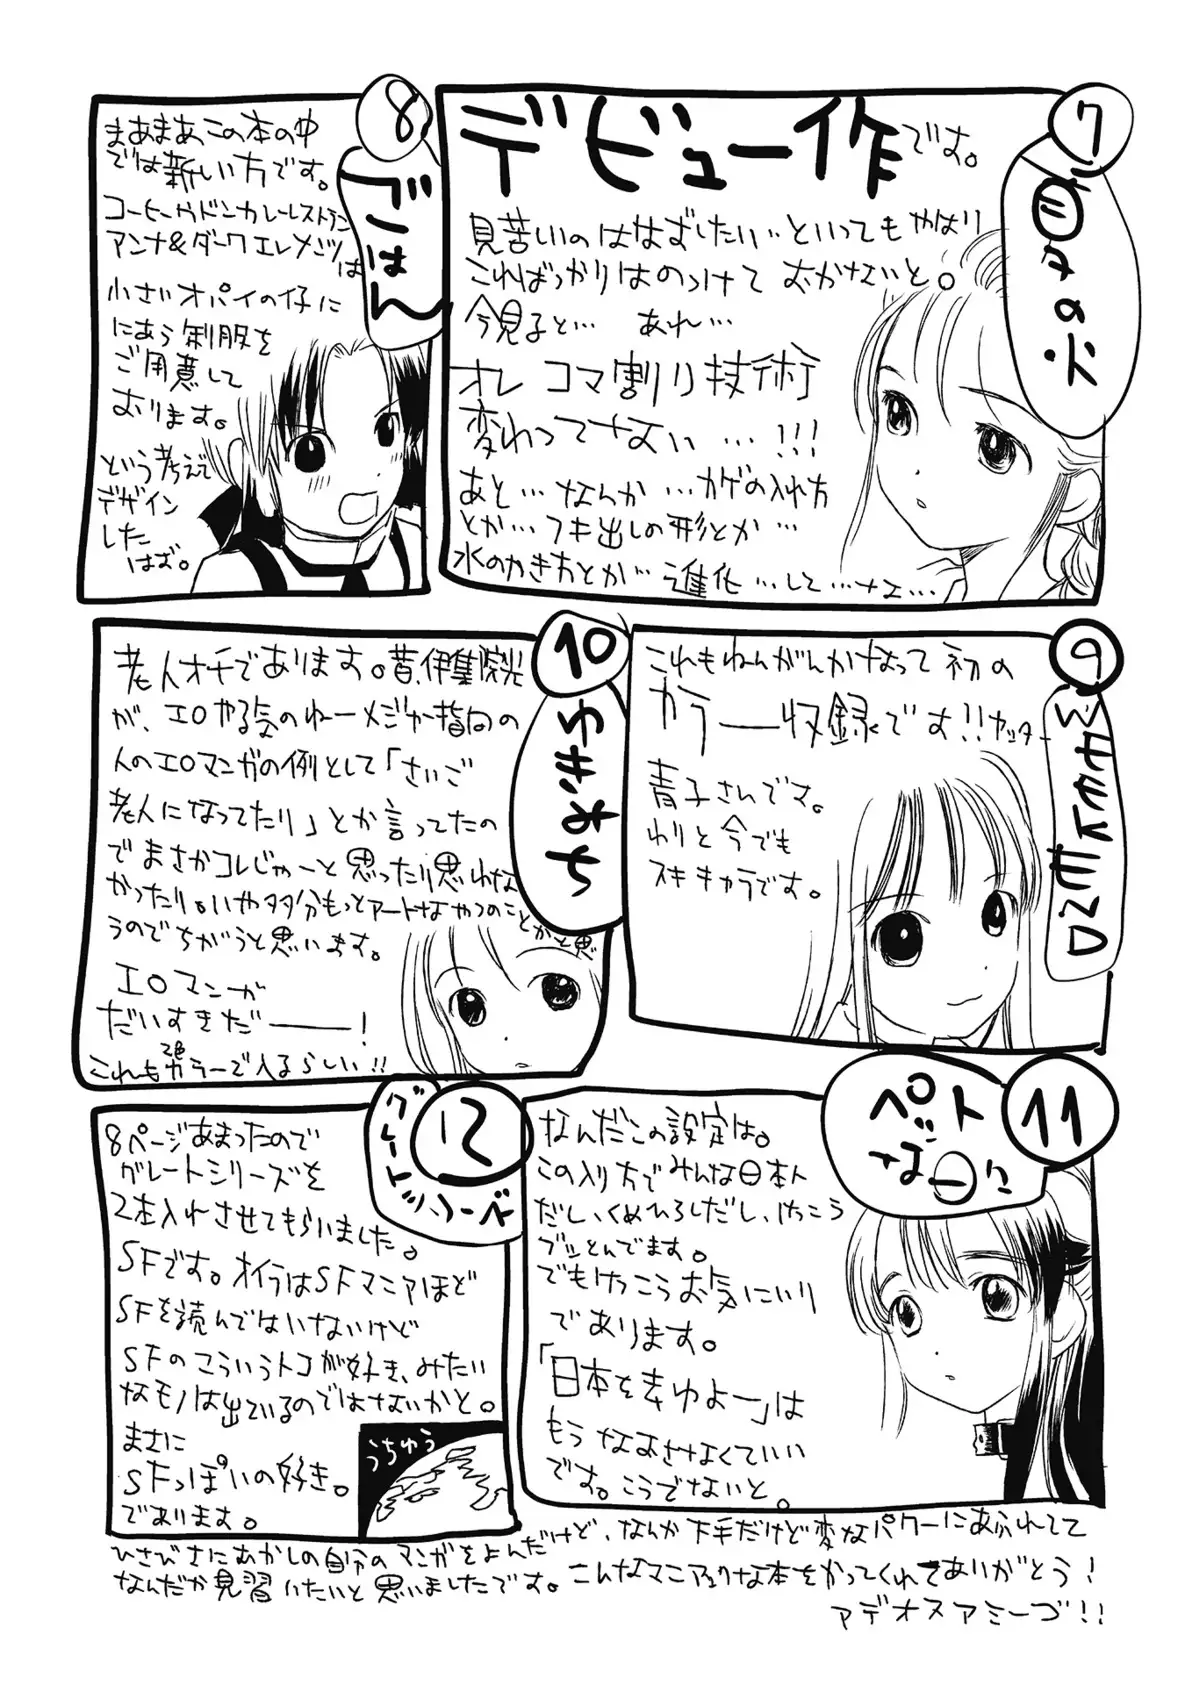 7
目々の火
デビュー作です。
見苦しいのははずしたい…といってもやはり
こればっかりはのっけておかないと。
今見ると… あれ…
オレ コマ割り技術
変わってない…!!!
あと…なんか…カゲの入れ方
とか…フキ出しの形とか…
水のかき方とか…進化…して…ナェ…
8
ごはん
まあまあこの本の中
では新しい方です。
コーヒーやドンカレーレストラン
アンナ&ダークエレメンツは
小さいオパイの仔に
にあう制服を
ご用意して
おります。
という考えで
デザイン
した
はず。
9
これもねんがんかなって初の
カラー収録です!!ヤッター
青子さんです。
わりと今でも
スキキャラです。
10
ゆきみち
老人オチであります。昔、伊集院光
が、エロやる気のねーメジャー指向の
人のエロマンガの例として「さいご
老人になってたり」とか言ってたの
でまさかコレじゃーと思ったり思わな
かったり。いや多分もっとアートなやつのことかと思
うのでちがうと思います。
エロマンガ
だいすきだーー!
これも2色カラーで入るらしい!!
11
ペットな日々
なんだこの設定は。
この入り方でみんな日本人
だし、くめひろしだし、けっこう
ブッとんでます。
でもけっこうお気にいり
であります。
「日本をまゆよー」は
もうなおさなくていい
です。こうでないと。
12
グレートハーベ
8ページあまったので
グレートシリーズを
2本入れさせてもらいました。
SFです。オイラはSFマニアほど
SFを読んではいないけど
SFのこういうトコが好き、みたい
なモノは出ているのではないかと。
まさに
SFっぽいの好き。
であります。
うちゅう
ひさびさにむかしの自分のマンガをよんだけど、なんか下手だけど変なパワーにあふれてて
なんだか見習いたいと思いましたです。こんなマニアックな本をかってくれてありがとう!
アデオスアミーゴ!!